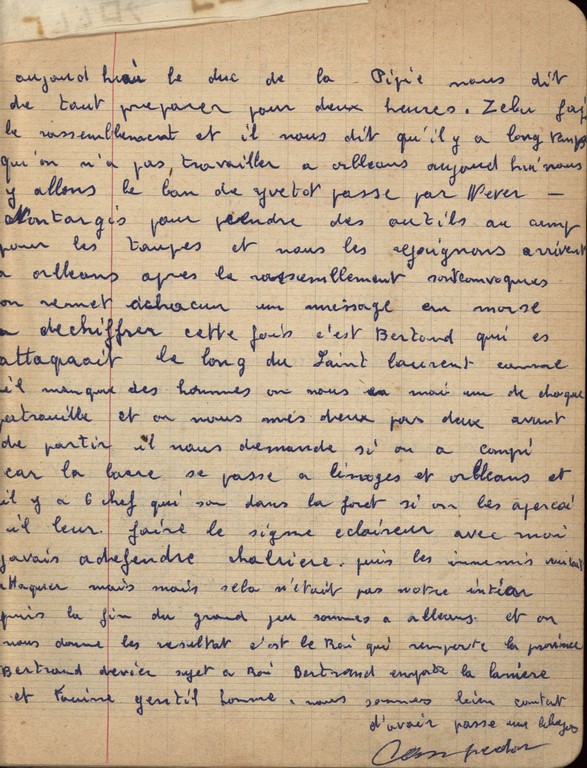 aujourd hui le duc de la Pipie nous dit
de tout preparer pour deux heures. Zebu fait
le rassemblement et il nous dit qu'il y a longtemps
qu'on n'a pas travailler a orleans aujourd hui nous
y allons le ban de yvetot passe par Never —
Montargis pour prendre des outils au camp
pour les taupes et nous les rejoignons arrivent
a orleans apres le rassemblement
on remet a chacun un message en morse
a dechiffrer cette fois c'est Bertrand qui es
attaquait le long du Saint laurent comme
il manque des hommes on nous en mai un de chaque
patrouille et on nous mes deux par deux avant
de partir il nous demande si on a compri
car la se passe a limoges et orleans et
il y a 6 chef qui son dans la foret si on les apercoi
il leur faire le signe eclaireur avec moi
javais a defendre puis les innemis
attaquer mais mais sela n'etait pas notre
puis la fin du grand jeu sommes a orleans. et on
nous donne les resultat c'est le Roi qui remporte la province
Bertrand devier sujet a Roi Bertrand emporte la laniere
et gentil homme. nous sommes bien contant
d'avoir passe une